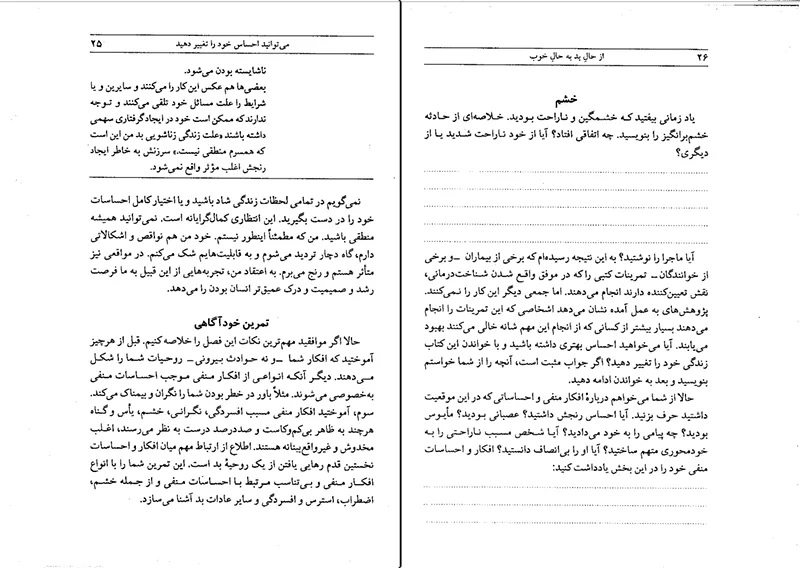 می‌توانید احساس خود را تغییر دهید ۲۵
ناشایسته بودن می‌شود.
بعضی‌ها هم عکس این کار را می‌کنند و سایرین و یا
شرایط را علت مسائل خود تلقی می‌کنند و توجه
ندارند که ممکن است خود در ایجاد گرفتاری سهمی
داشته باشند «علت زندگی زناشویی بد من این است
که همسرم منطقی نیست.» سرزنش به خاطر ایجاد
رنجش اغلب مؤثر واقع نمی‌شود.
نمی‌گویم در تمامی لحظات زندگی شاد باشید و یا اختیار کامل احساسات
خود را در دست بگیرید. این انتظاری کمال‌گرایانه است. نمی‌توانید همیشه
منطقی باشید. من که مطمئناً اینطور نیستم. خود من هم نواقص و اشکالاتی
دارم، گاه دچار تردید می‌شوم و به قابلیت‌هایم شک می‌کنم. در مواقعی نیز
متأثر هستم و رنج می‌برم. به اعتقاد من، تجربه‌هایی از این قبیل به ما فرصت
رشد و صمیمیت و درک عمیق‌تر انسان بودن را می‌دهد.
تمرین خودآگاهی
حالا اگر موافقید مهم‌ترین نکات این فصل را خلاصه کنیم. قبل از هرچیز
آموختید که افکار شما –و نه حوادث بیرونی– روحیات شما را شکل
می‌دهند. دیگر آنکه انواعی از افکار منفی موجب احساسات منفی
به‌خصوصی می‌شوند. مثلاً باور در خطر بودن شما را نگران و بیمناک می‌کند.
سوم، آموختید افکار منفی مسبب افسردگی، نگرانی، خشم، یأس و گناه
هرچند به ظاهر بی‌کم‌وکاست و صددرصد درست به نظر می‌رسند، اغلب
مخدوش و غیرواقع‌بینانه هستند. اطلاع از ارتباط مهم میان افکار و احساسات
نخستین قدم رهایی یافتن از یک روحیهٔ بد است. این تمرین شما را با انواع
افکار منفی و بی‌تناسب مرتبط با احساسات منفی و از جمله خشم،
اضطراب، استرس و افسردگی و سایر عادات بد آشنا می‌سازد.
۲۶ از حال بد به حال خوب
خشم
یاد زمانی بیفتید که خشمگین و ناراحت بودید. خلاصه‌ای از حادثه
خشم‌برانگیز را بنویسید. چه اتفاقی افتاد؟ آیا از خود ناراحت شدید یا از
دیگری؟
آیا ماجرا را نوشتید؟ به این نتیجه رسیده‌ام که برخی از بیماران –و برخی
از خوانندگان– تمرینات کتبی را که در موفق واقع شدن شناخت‌درمانی،
نقش تعیین‌کننده دارند انجام می‌دهند. اما جمعی دیگر این کار را نمی‌کنند.
پژوهش‌های به عمل آمده نشان می‌دهد اشخاصی که این تمرینات را انجام
می‌دهند بسیار بیشتر از کسانی که از انجام این مهم شانه خالی می‌کنند بهبود
می‌یابند. آیا می‌خواهید احساس بهتری داشته باشید و با خواندن این کتاب
زندگی خود را تغییر دهید؟ اگر جواب مثبت است، آنچه را از شما خواستم
بنویسید و بعد به خواندن ادامه دهید.
حالا از شما می‌خواهم دربارهٔ افکار منفی و احساساتی که در این موقعیت
داشتید حرف بزنید. آیا احساس رنجش داشتید؟ عصبانی بودید؟ مأیوس
بودید؟ چه پیامی را به خود می‌دادید؟ آیا شخص مسبب ناراحتی را به
خودمحوری متهم ساختید؟ آیا او را بی‌انصاف دانستید؟ افکار و احساسات
منفی خود را در این بخش یادداشت کنید: